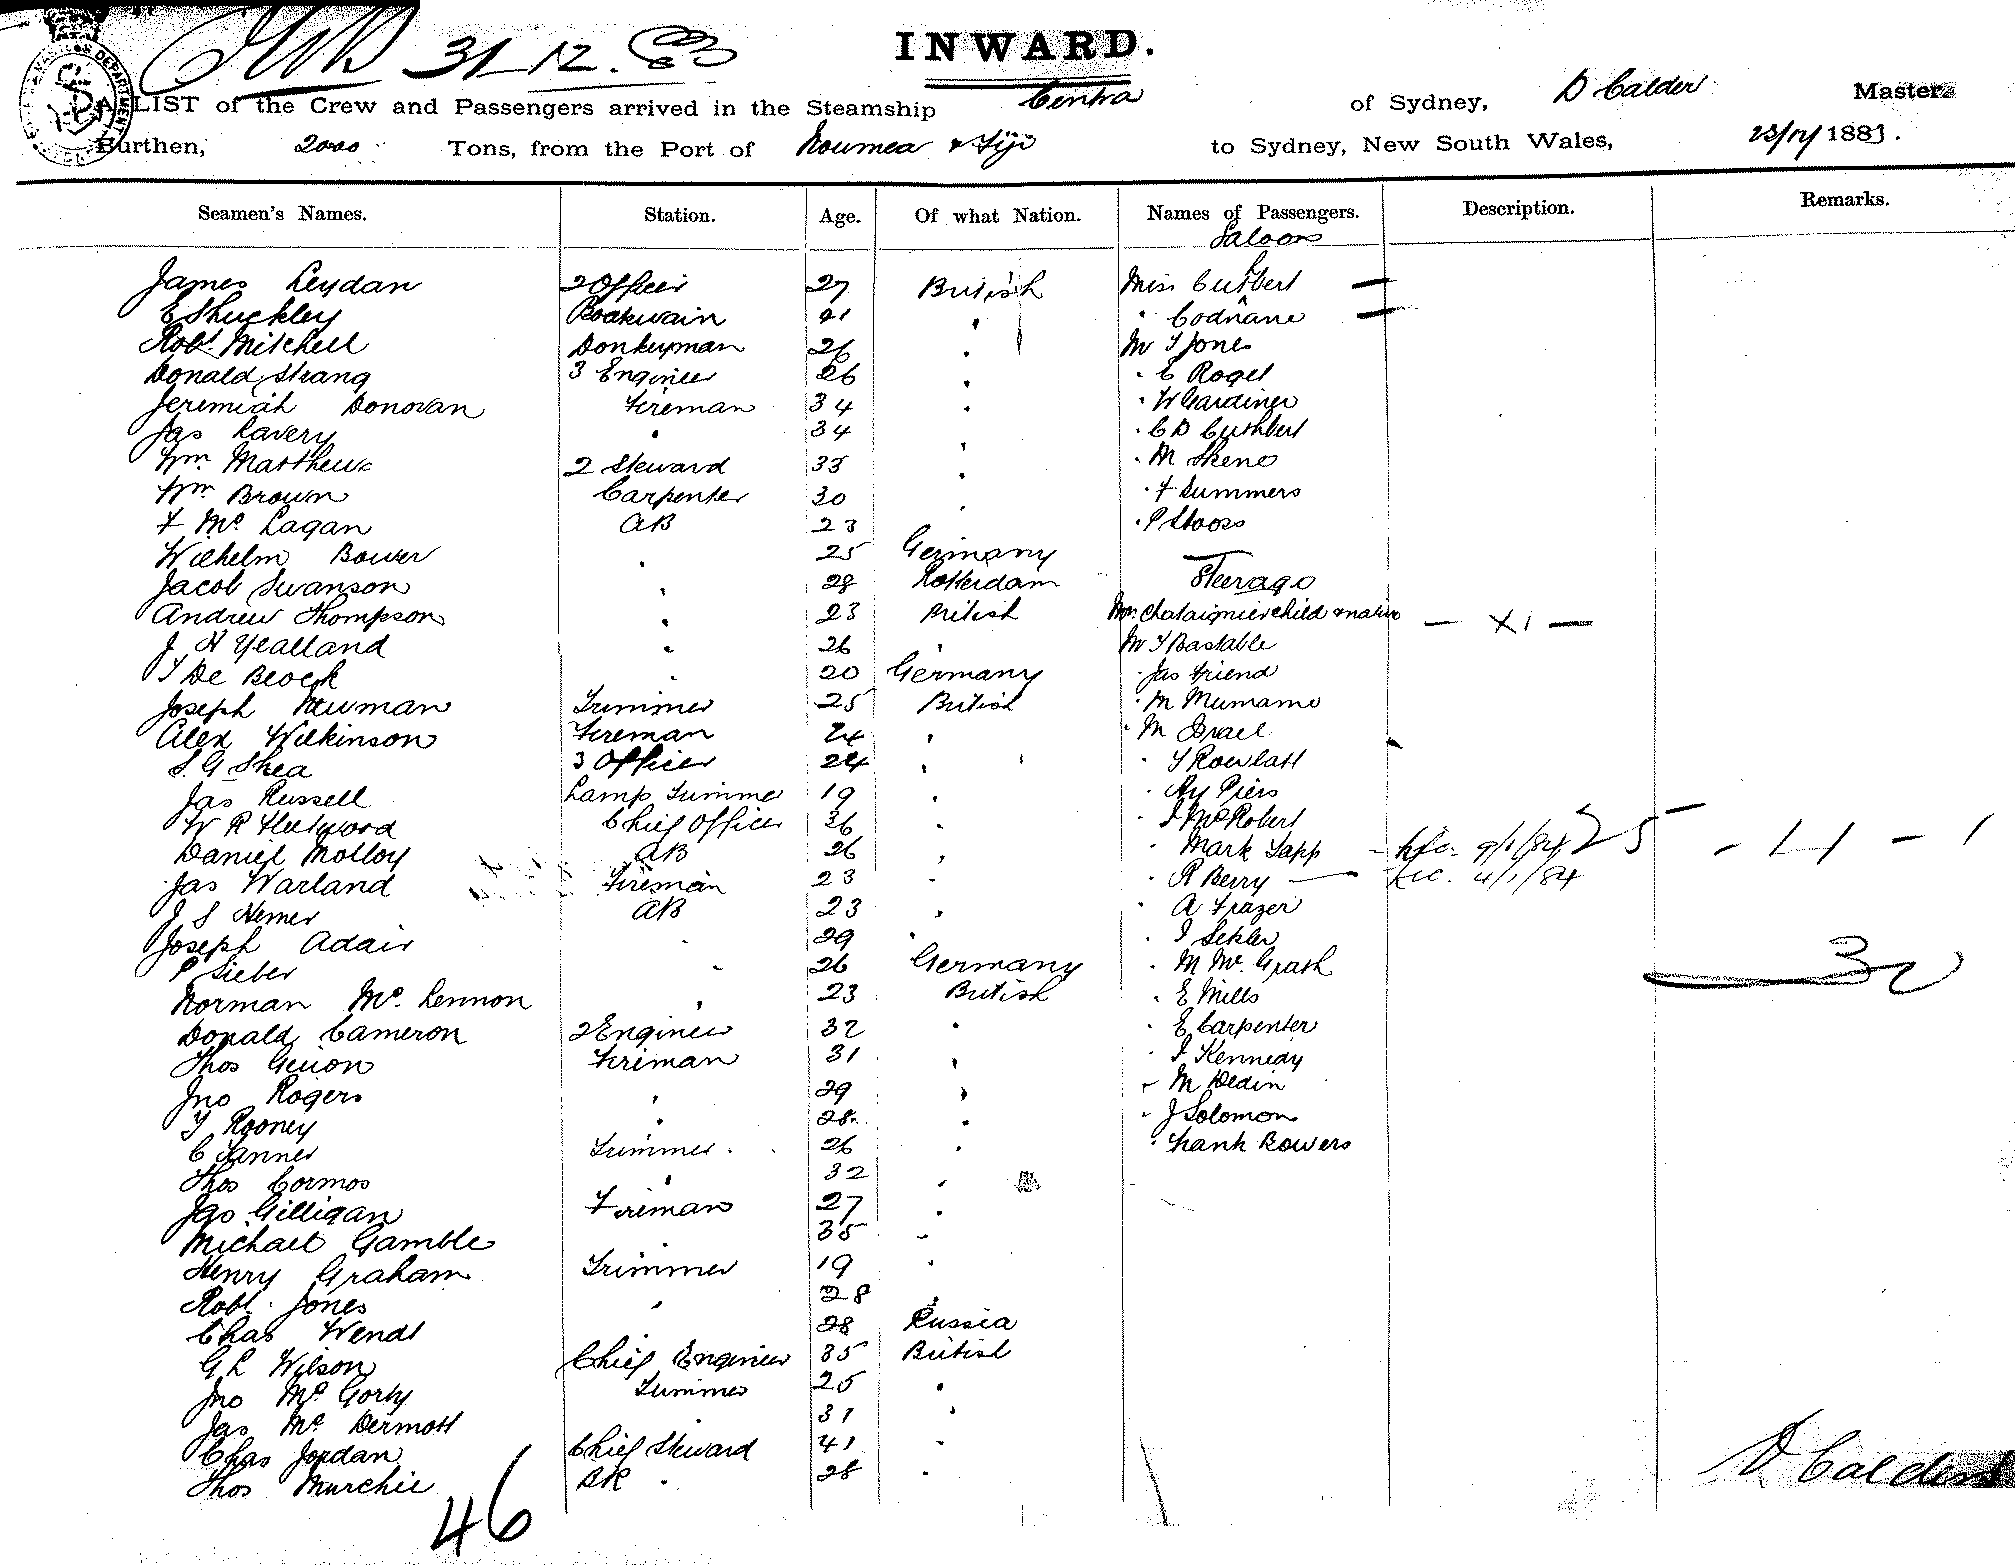 31_12. 83
INWARD.
A LIST of the Crew and Passengers arrived in the Steamship Centra of Sydney, D Calder Master
Burthen, 2000 Tons, from the Port of Noumea & Fiji to Sydney, New South Wales, 23/12/1883.
Seamen's Names. Station. Age. Of what Nation. Names of Passengers. Description. Remarks.
Saloon
James Leydan 2 Officer 27 British Miss Cuthbert —
E Shuckley Boatswain 41 " " Codnane —
Robt Mitchell Donkeyman 26 " Mr T Jones
Donald Strang 3 Engineer 26 " " E Roget
Jeremiah Donovan Fireman 34 " " W Gardiner
Jas Lavery " 34 " " C D Cuthbert
Wm Matthews 2 Steward 33 " " M Skene
Wm Brown Carpenter 30 " " F Summers
F Mc Lagan AB 23 " P Stoos
Wilhelm Bower " 25 Germany
Jacob Swanson " 28 Rotterdam Steerage
Andrew Thompson " 23 British Mrs Chataignier child & native — XI —
J H Yealland " 26 Mr T Bastable
T De Block " 20 Germany " Jas Friend
Joseph Newman Trimmer 25 British " M Mumamo
Alex Wilkinson Fireman 24 " " M Israel
S. G Shea 3 Officer 24 " " T Rowlatt
Jas Russell Lamp Trimmer 19 " " Hy Piers
W R Fleetwood Chief Officer 36 " " J McRobert
Daniel Molloy AB 26 " " Mark Tapp 9/1/84 25 - 11 - 1
Jas Warland Fireman 23 " " R Berry — 4/1/84
J S Hemer AB 23 " " A Frazer
Joseph Adair " 29 " " J Sekler
P Sieber " 26 Germany " M Mc Grath 32
Norman Mc Lennon " 23 British " E Mills
Donald Cameron 2 Engineer 32 " " E Carpenter
Thos Gerion Fireman 31 " " J Kennedy
Jno Rogers " 29 " " M Dedin
T Rooney " 28 " " J Solomon
C Tanner Trimmer 26 " " Frank Bowers
Thos Cormos " 32 "
Jas Gilligan Fireman 27 "
Michael Gamble " 35 "
Henry Graham Trimmer 19 "
Robt Jones " 28 "
Chas Wendt 28 Russia
G L Wilson Chief Engineer 35 British
Jno Mc Gorty Trimmer 25 "
Jas Mc Dermott " 31 "
Chas Jordan Chief Steward 41 "
Thos Murchie " 28 "
D Calder
46